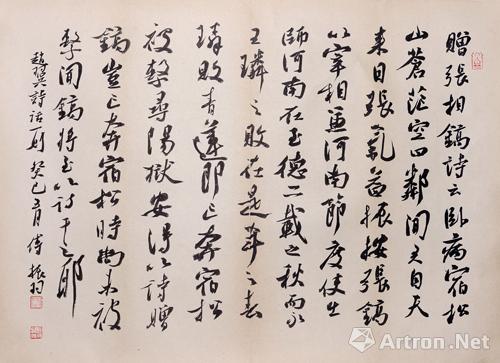 贈張相鎬詩云卧病宿松
山蒼茫空四鄰聞君自天
来目張氣益振按張鎬
以宰相兼河南節度使出
師河南在至德二載之秋而永
王璘之敗在是年之春
璘敗青蓮即亡奔宿松
被繫尋陽獄安得以詩贈
鎬豈亡奔宿松時尚未被
繫聞鎬將至以詩干之耶
趙翼詩話一則 癸巳 月 傅振
Artron.Net